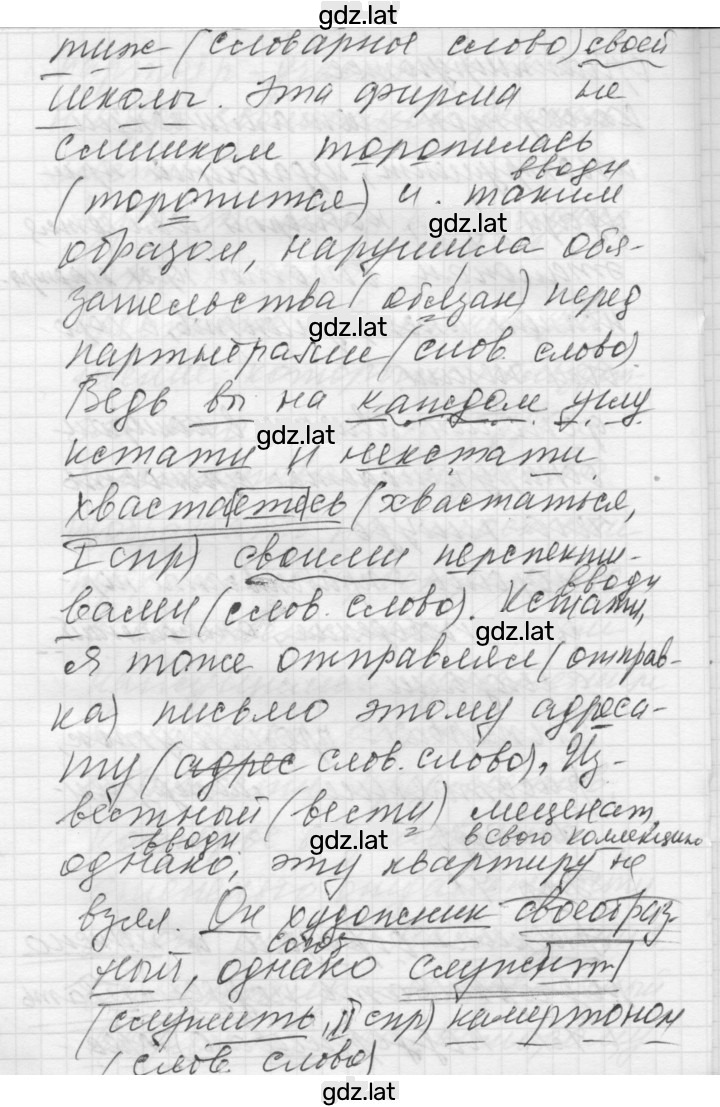 gdz.lat
тиж (словарное слово) своей
школы. Эта фирма не
слишком торопилась
вводн
(торопится) и. таким
gdz.lat
образом, нарушила обя-
зательства (обязан) перед
gdz.lat
партнёрами (слов. слово)
Ведь вы на каждом углу
gdz.lat
кстати и некстати
хвастаетесь (хвастаться,
I спр) своими перспекти-
вводн
вами (слов. слово). Кстати,
gdz.lat
я тоже отправлял (отправ-
ка) письмо этому адреса-
ту (адрес слов. слово). Из-
вестный (вести) меценат,
вводн в свою коллекцию
gdz.lat
однако, эту квартиру не
взял. Он художник своеобраз-
союз
ный, однако служит
(служить, II спр) камертоном
(слов. слово)
gdz.lat